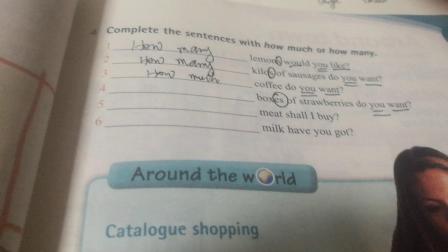 4 Complete the sentences with how much or how many.
1 How many lemons would you like?
2 How many kilos of sausages do you want?
3 How much coffee do you want?
4 boxes of strawberries do you want?
5 meat shall I buy?
6 milk have you got?
Around the world
Catalogue shopping